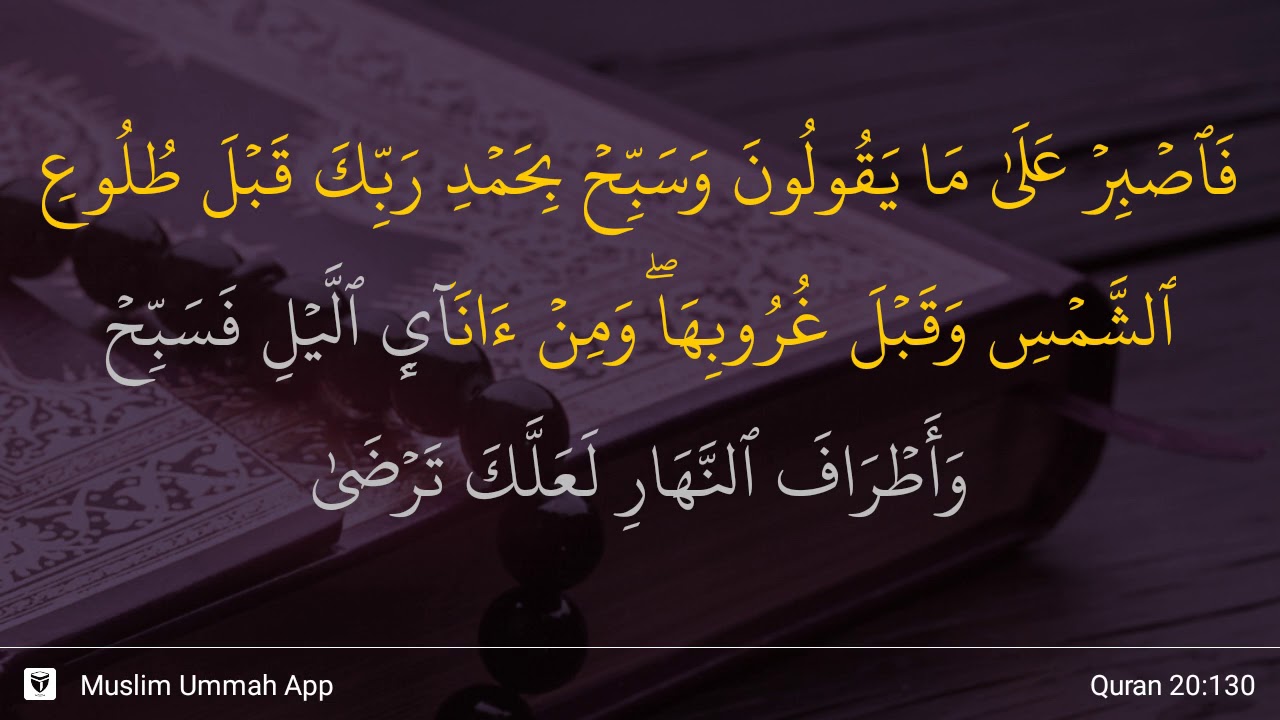 فَٱصْبِرْ عَلَىٰ مَا يَقُولُونَ وَسَبِّحْ بِحَمْدِ رَبِّكَ قَبْلَ طُلُوعِ
ٱلشَّمْسِ وَقَبْلَ غُرُوبِهَا ۖ وَمِنْ ءَانَآئِ ٱلَّيْلِ فَسَبِّحْ
وَأَطْرَافَ ٱلنَّهَارِ لَعَلَّكَ تَرْضَىٰ
Muslim Ummah App
Quran 20:130